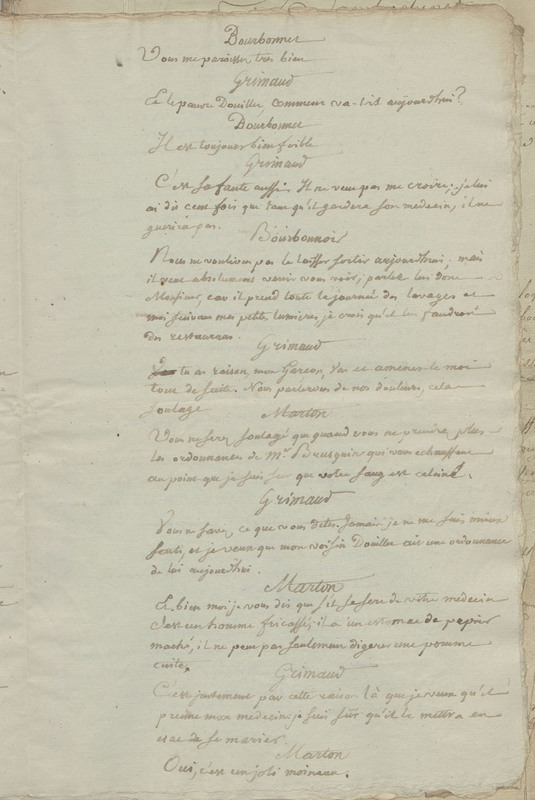 Bourbonnes
Vous me paraisser tres bien
Grimaud
Et le pauvre Douillet comment va-t-il aujourd'hui?
Bourbonnes
Il est toujours bien foible
Grimaud
C'est sa faute aussi. Il ne veut pas me croire; je lui
ai dis cent fois que tant qu'il gardera son medecin, il ne
guerira pas.
Bourbonnois
Nous ne voulions pas le laisser sortir aujourd'hui. mais
il veut absolument venir vous voir; parlez lui donc
Monsieur, car il prend toute la journée des lavages et
moi suivant mes petites lumieres, je crois qu'il lui faudroit
des restaurans.
Grimaud
tu as raison, mon Garcon, Vas et amenes le moi
tout de suite. Nous parlerons de nos douleurs, cela
soulage
Marton
Vous ne serez soulagé que quand vous ne prendrez plus
les ordonnances de Mr. Brusquin qui vous echauffent
au point que je suis sur que votre sang est calciné.
Grimaud
Vous ne savez ce que vous dites. Jamais je ne me suis mieux
senti, et je veux que mon voisin Douillet ait une ordonnance
de lui aujourd'hui.
Marton
Et bien moi je vous dis que s'il se sert de votre medecin
c'est un homme fricassé; il a un estomac de papier
maché, il ne peut pas seulement digerer une pomme
cuite.
Grimaud
C'est justement par cette raison là que je veux qu'il
prenne mon medecin; je suis sûr qu'il le mettra en
etat de se marier.
Marton
Oui, c'est un joli moineau.